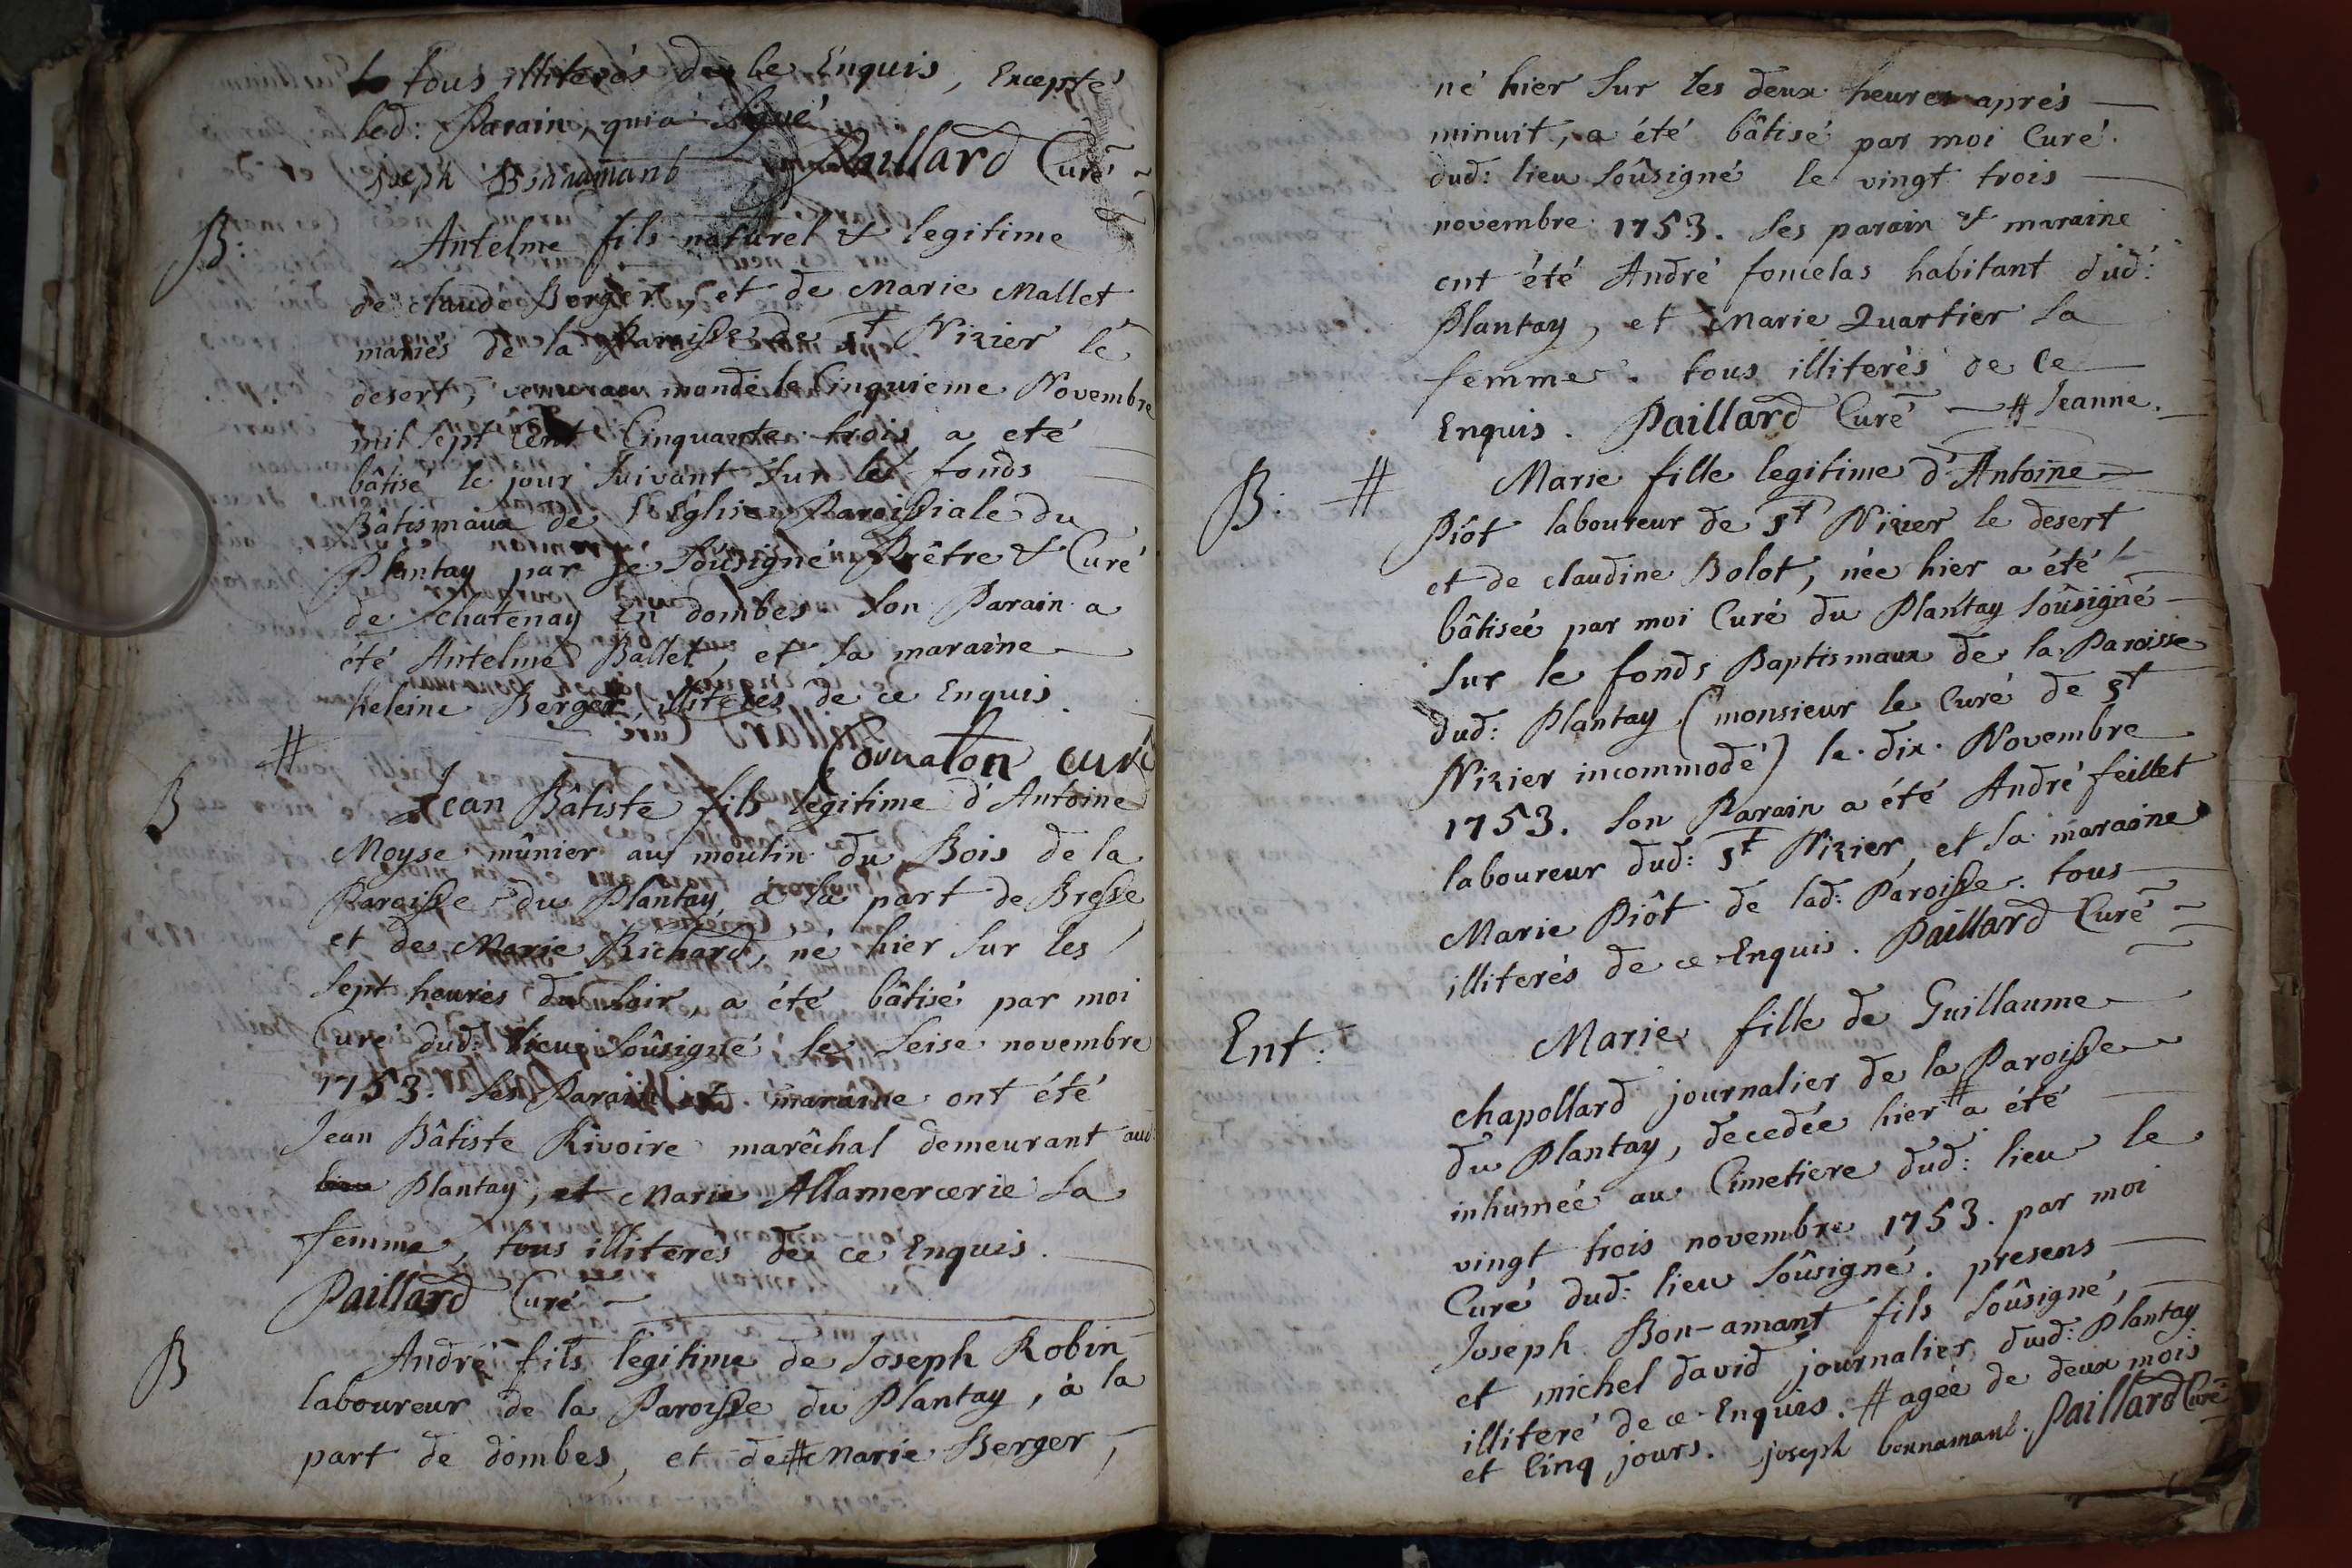 tous illiterés de ce Enquis, Excepté
led: Parain, qui a signé
joseph Bonnamant Paillard Curé
B: Antelme fils naturel & legitime
de claude Berger, et de Marie Mallet
mariés de la Paroisse de st Nizier le
desert, venu au monde le Cinquieme Novembre
mil sept cent Cinquante trois a eté
bâtisé le jour suivant sur les fonds
Bâtismaux de l'Eglise Paroissiale du
Plantay par Je soûsigné Prêtre & Curé
de chatenay En dombes son Parain a
été Antelme Ballet, et sa maraine
heleine Berger, illiterés de ce Enquis.
# Cornaton curé
B Jean Bâtiste fils legitime d'Antoine
Moyse mûnier au moulin du Bois de la
Paroisse du Plantay à la part de Bresse
et de Marie Richard, né hier sur les
sept heures du soir, a été bâtisé par moi
Curé dud: lieu soûsigné le seise novembre
1753. Ses Parain et maraine ont été
Jean Bâtiste Rivoire marêchal demeurant aud:
Plantay, et Marie Allamercerie sa
femme, tous illiterés de ce Enquis.
Paillard Curé
B André fils legitime de Joseph Robin
laboureur de la Paroisse du Plantay, à la
part de dombes, et de # Marie Berger,
né hier sur les deux heures aprés
minuit, a été bâtisé par moi Curé
dud: lieu soûsigné le vingt trois
novembre 1753. Ses parain & maraine
ont été André foncelas habitant dud:
Plantay, et Marie Quartier sa
femme. tous illiterés de ce
Enquis. Paillard Curé # Jeanne.
B: # Marie fille legitime d'Antoine
Piôt laboureur de st Nizier le desert
et de claudine Bolot, née hier a été
bâtiseé par moi Curé du Plantay soûsigné
sur le fonds Baptismaux de la Paroisse
dud: Plantay (monsieur le Curé de st
Nizier incommodé) le dix Novembre
1753. Son Parain a été André feillet
laboureur dud: st Nizier, et sa maraine
Marie Piôt de lad: Paroisse. tous
illiterés de ce Enquis. Paillard Curé
Ent: Marie fille de Guillaume
chapollard journalier de la Paroisse
du Plantay, decedée hier # a été
inhumeé au Cimetiere dud: lieu le
vingt trois novembre 1753. par moi
Curé dud: lieu soûsigné. presens
Joseph Bon-amant fils soûsigné,
et michel david journalier dud: Plantay
illiteré de ce Enquis. # ageé de deux mois
et Cinq jours. joseph bonnamant. Paillard Curé